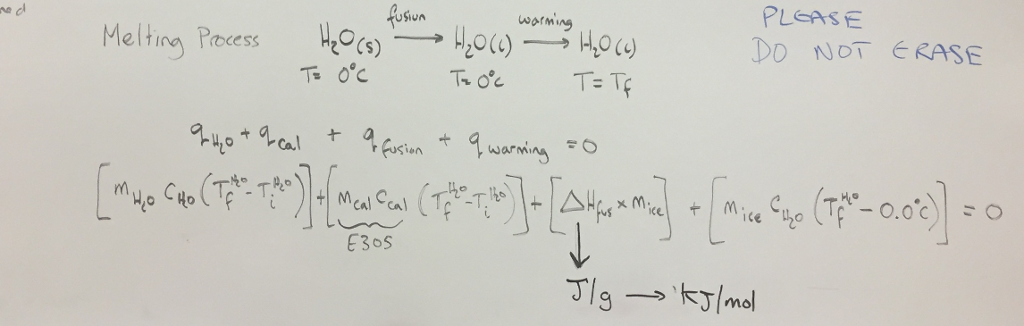 PLEASE
DO NOT ERASE
Melting Process H₂O(s) fusion → H₂O(l) warming → H₂O(l)
T= 0°C T= 0°C T= T_f
q_H₂O + q_cal + q_fusion + q_warming = 0
[m_H₂O C_H₂O (T_f^H₂O - T_i^H₂O)] + [m_cal C_cal (T_f^H₂O - T_i^H₂O)] + [ΔH_fus × m_ice] + [m_ice C_H₂O (T_f^H₂O - 0.0°C)] = 0
E305
↓
J/g → kJ/mol